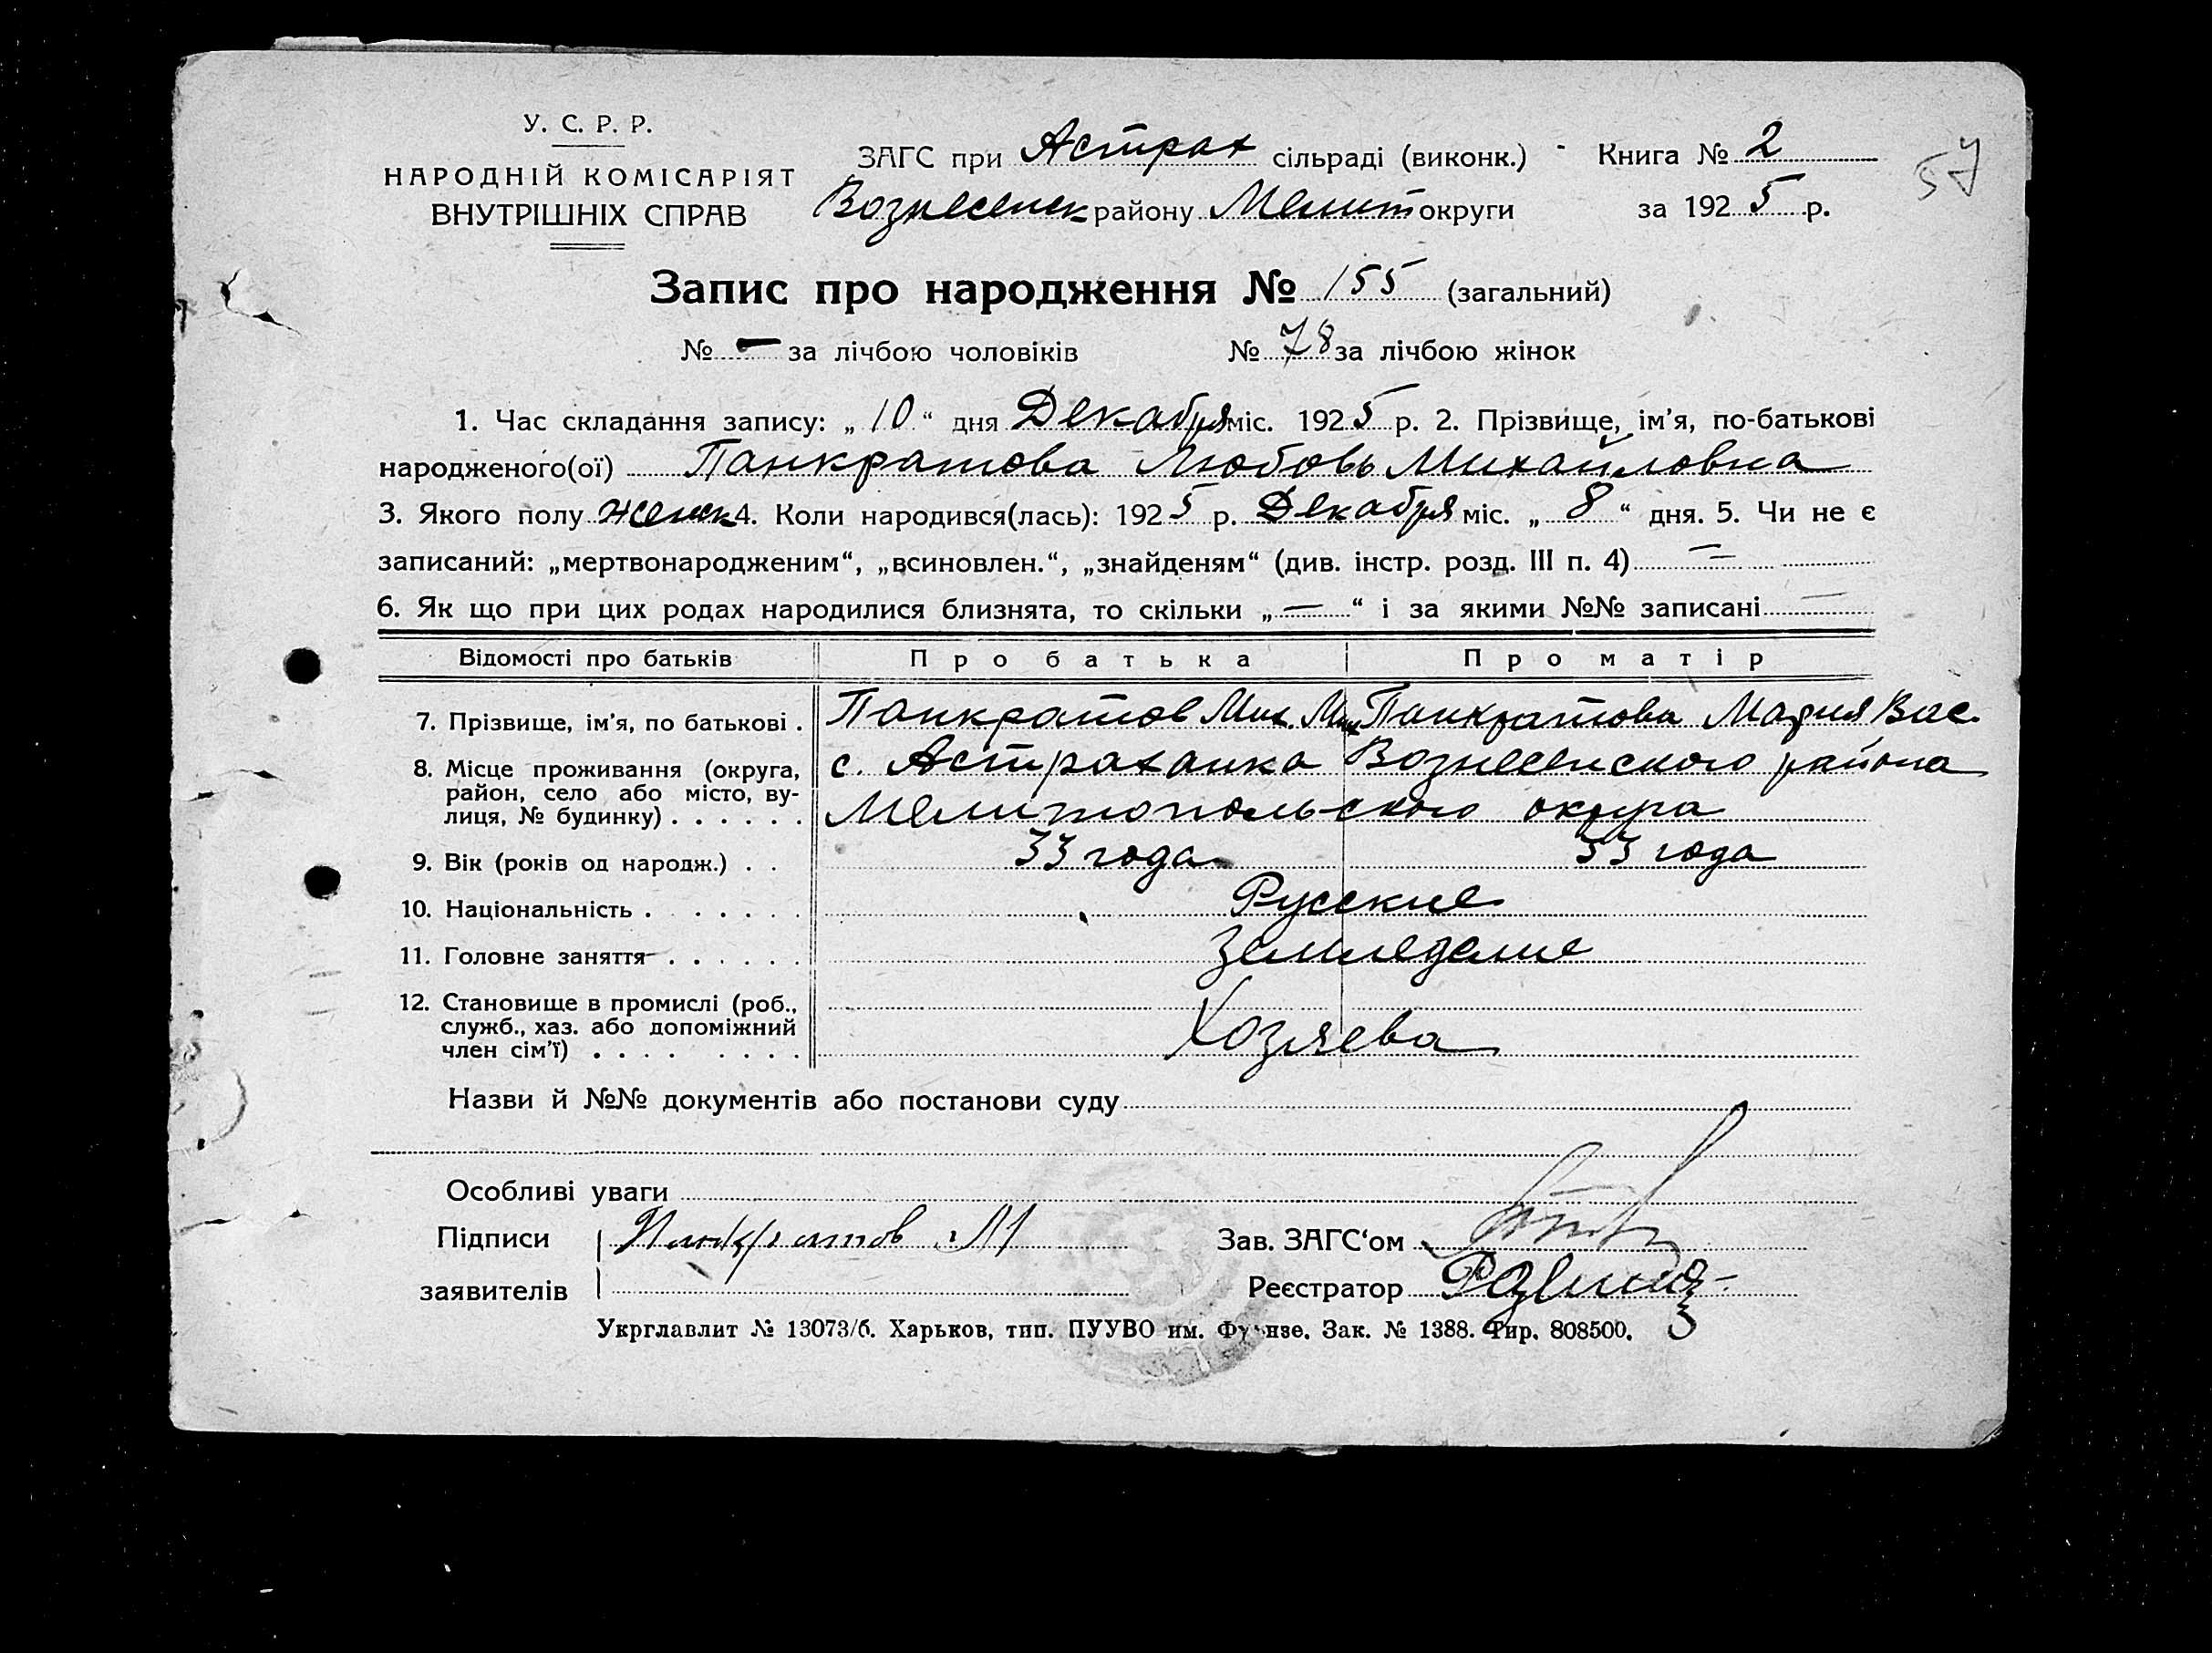 У. С. Р. Р.
НАРОДНІЙ КОМІСАРІЯТ
ВНУТРІШНІХ СПРАВ
ЗАГС при Астрах сільраді (виконк.) Книга № 2
Вознесенск району Мелит округи за 1925 р.
57
Запис про народження № 155 (загальний)
№ - за лічбою чоловіків № 78 за лічбою жінок
1. Час складання запису: „10“ дня Декабря міс. 1925 р. 2. Прізвище, ім'я, по-батькові
народженого(ої) Панкратова Любовь Михайловна
3. Якого полу женск 4. Коли народився(лась): 1925 р. Декабря міс. „8“ дня. 5. Чи не є
записаний: „мертвонародженим“, „всиновлен.“, „знайденям“ (див. інстр. розд. III п. 4) —
6. Як що при цих родах народилися близнята, то скільки „—“ і за якими №№ записані —
Відомості про батьків Про батька Про матір
7. Прізвище, ім'я, по батькові . Панкратов Мих. Мих Панкратова Мария Вас.
8. Місце проживання (округа, с. Астраханка Вознесенского района
район, село або місто, ву-
лиця, № будинку) . . . . . . Мелитопольского округа
9. Вік (років од народж.) . . 33 года 33 года
10. Національність . . . . . . . Русские
11. Головне заняття . . . . . . Земледелие
12. Становище в промислі (роб.,
служб., хаз. або допоміжний
член сім'ї) . . . . . . . . Хозяева
Назви й №№ документів або постанови суду
Особливі уваги
Підписи Панкратов М Зав. ЗАГС'ом
заявителів Реєстратор
Укрглавлит № 13073/б. Харьков, тип. ПУУВО им. Фрунзе. Зак. № 1388. Тир. 808500.